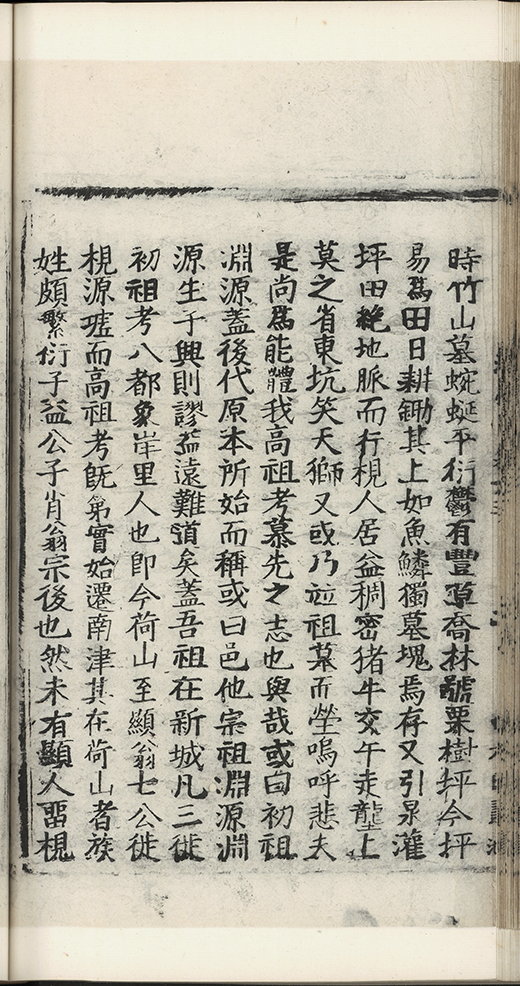 時竹山墓蜿蜒平衍鬱有豐草喬林號栗樹坪今坪
易爲田日耕鋤其上如魚鱗獨墓塊焉存又引泉灌
坪田絶地脈而行梘人居益稠密猪牛交午走壟上
莫之省東坑笑天獅又或乃竝祖墓而塋嗚呼悲夫
是尚爲能體我高祖考慕先之志也與哉或曰初祖
淵源蓋後代原本所始而稱或曰邑他宗祖淵源淵
源生子興則謬益遠難道矣蓋吾祖在新城凡三徙
初祖考八都象岸里人也卽今荷山至顯翁七公徙
梘源壚而高祖考旣第實始遷南津其在荷山者族
姓頗繁衍子益公子肖翁宗後也然未有顯人畱梘